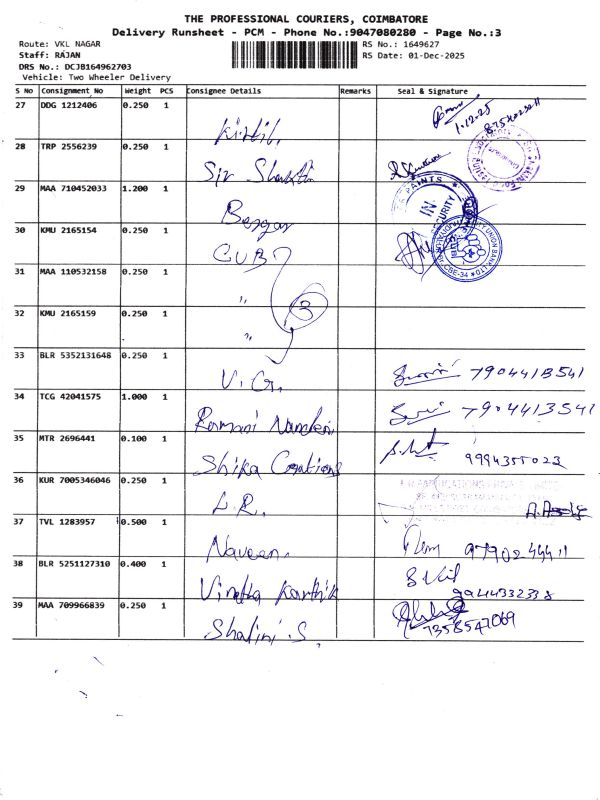 THE PROFESSIONAL COURIERS, COIMBATORE
Delivery Runsheet - PCM - Phone No.:9047080280 - Page No.:3
Route: VKL NAGAR
RS No.: 1649627
Staff: RAJAN
RS Date: 01-Dec-2025
DRS No.: DCJB164962703
Vehicle: Two Wheeler Delivery
S No Consignment No Weight PCS Consignee Details Remarks Seal & Signature
27 DDG 1212406 0.250 1
1.12.25
28 TRP 2556239 0.250 1
Sir Shakthi
29 MAA 710452033 1.200 1
PAINTS
IN
SECURITY
Berger
30 KMU 2165154 0.250 1
CUB
UNION BANK LTD
CBE-34
31 MAA 110532158 0.250 1
"
3
32 KMU 2165159 0.250 1
"
33 BLR 5352131648 0.250 1
V.G.
7904413541
34 TCG 42041575 1.000 1
Ramani
7904413541
35 MTR 2696441 0.100 1
Shika Creations
9994355023
36 KUR 7005346046 0.250 1
L.R.
37 TVL 1283957 0.500 1
Naveen.
9790244411
38 BLR 5251127310 0.400 1
Vinetha Karthik
9944332338
39 MAA 709966839 0.250 1
Shalini.S
7358547069